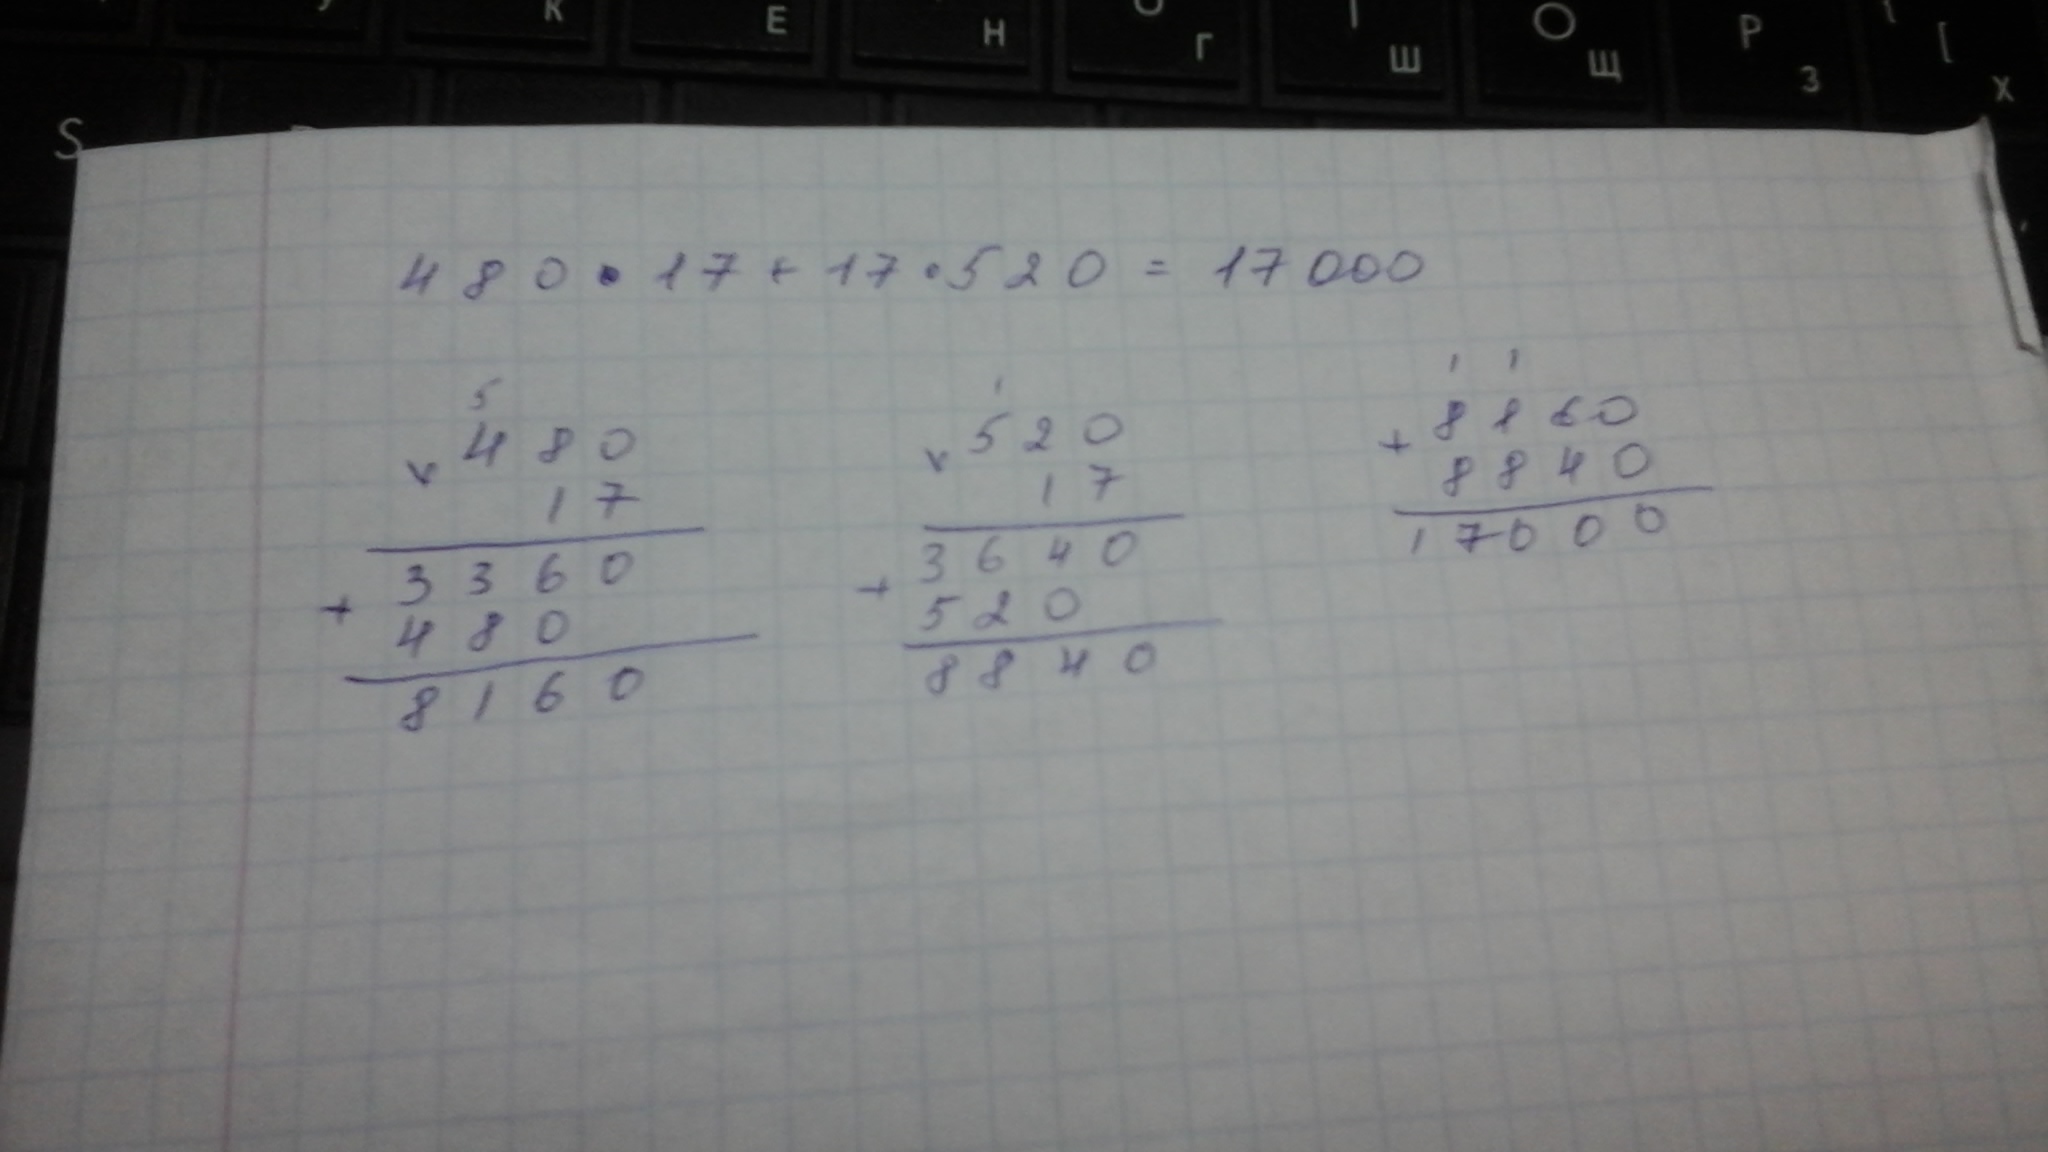 У К Е Н Г Ш Щ З Х
О Р [
S
480 • 17 + 17 • 520 = 17000
5
× 480
17
3360
+ 480
8160
1
× 520
17
3640
+ 520
8840
1 1
+ 8160
8840
17000